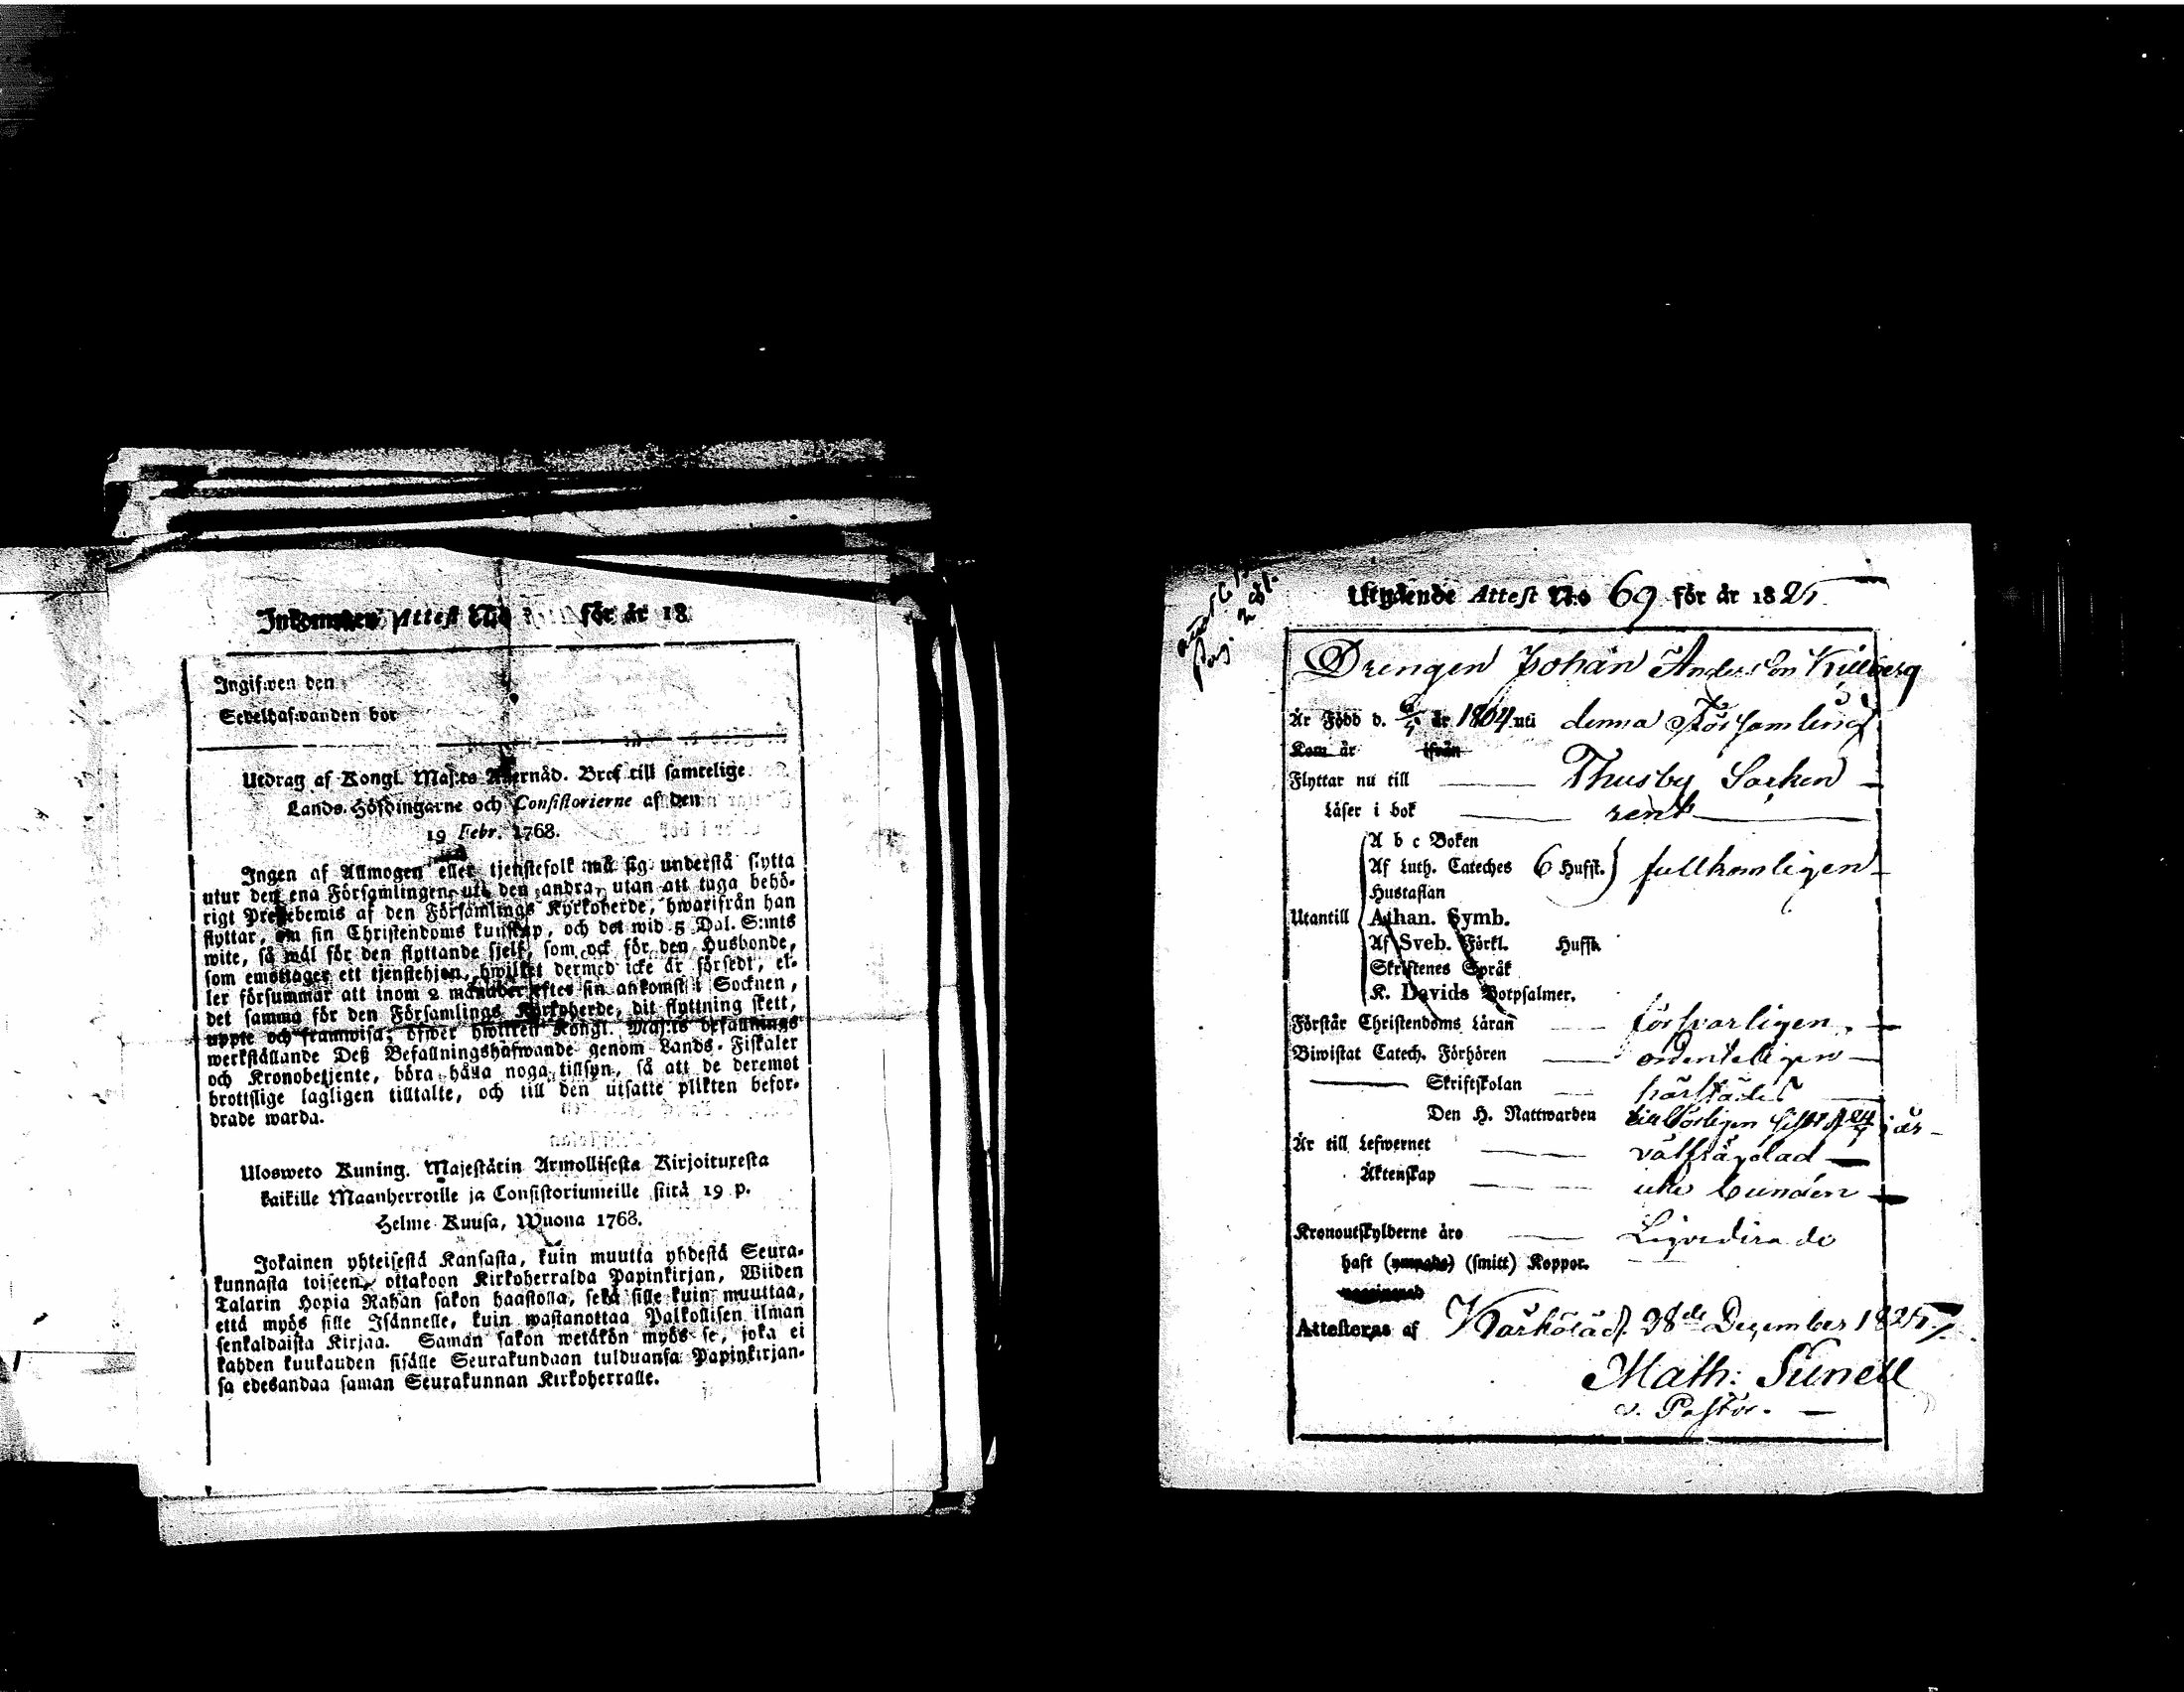 Inkommen Attest No för år 18
Ingifwen den
Sedelhafwanden bor
Utdrag af Kongl. Maj:ts Allernåd. Bref till samtelige
Lands-Höfdingarne och Consistorierne af den
19 Febr. 1768.
Ingen af Allmogen eller tjenstefolk må sig understå flytta
utur den ena Församlingen uti den andra, utan att taga behö-
rigt Prestebewis af den Församlings Kyrkoherde, hwarifrån han
flyttar, om sin Christendoms kunskap, och det wid 5 Dal. S:mts
wite, så wäl för den flyttande sjelf, som ock för den Husbonde,
som emottager ett tjenstehjon, hwilket dermed icke är försedt, el-
ler försummar att inom 2 månader efter sin ankomst i Socknen,
det samma för den Församlings Kyrkoherde, dit flyttning skett,
uppte och framwisa; öfwer hwilket Kongl. Maj:ts befallnings
werkställande Deß Befallningshafwande genom Lands-Fiskaler
och Kronobetjente, böra hålla noga tillsyn, så att de deremot
brottslige lagligen tilltalte, och till den utsatte plikten befor-
drade warda.
Ulosweto Kuning. Majestätin Armollisesta Kirjoituxesta
kaikille Maanherroille ja Consistoriumeille siitä 19 p.
Helme Kuusa, Wuona 1768.
Jokainen yhteisestä Kansasta, kuin muutta yhdestä Seura-
kunnasta toiseen, ottakoon Kirkoherralda Papinkirjan, Wiiden
Talarin Hopia Rahan sakon haastolla, sekä sille kuin muuttaa,
että myös sille Isännelle, kuin wastanottaa Palkollisen ilman
senkaldaista Kirjaa. Saman sakon wetäkön myös se, joka ei
kahden kuukauden sisälle Seurakundaan tulduansa Papinkirjan-
sa edesandaa saman Seurakunnan Kirkoherralle.
Utgående Attest No 69 för år 1825
Drengen Johan Andersson Killberg
Är Född d. år 1804 uti denna Församling
Kom år ifrån
Flyttar nu till Thusby Socken
Läser i bok rent
A b c Boken
Af Luth. Cateches 6 Hufst. fullkomligen
Hustaflan
Utantill Athan. Symb.
Af Sveb. Förkl. Hufst.
Skriftenes Språk
K. Davids Botpsalmer.
Förstår Christendoms Läran försvarligen
Biwistat Catech. Förhören ordenteligen
Skriftskolan härstädes
Den H. Nattwarden i år
Är till Lefwernet välfrägdad
Äktenskap icke bunden
Kronoutskylderne äro Liqviderade
haft (smitt) Koppor.
Attesteras af Kärkölä d. 28de December 1825
Math: Sunell
v. Pastor.